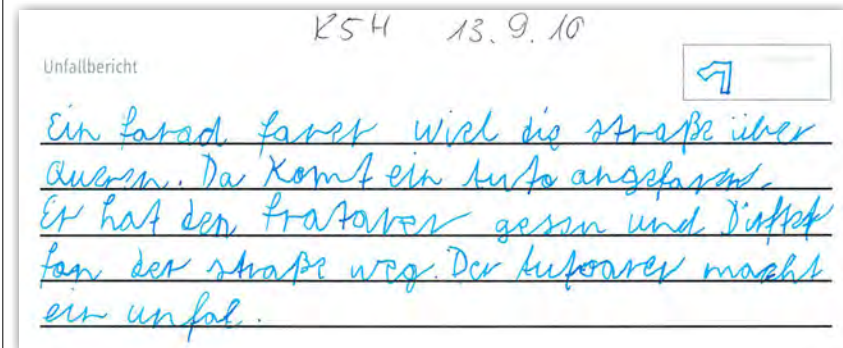 K5H 13.9.10
Unfallbericht
1
Ein farad farer wiel die straße über
queren. Da Komt ein Auto angefaren.
Er hat den fratarer gessn und
fon der straße weg. Der Autoarer macht
ein unfal.